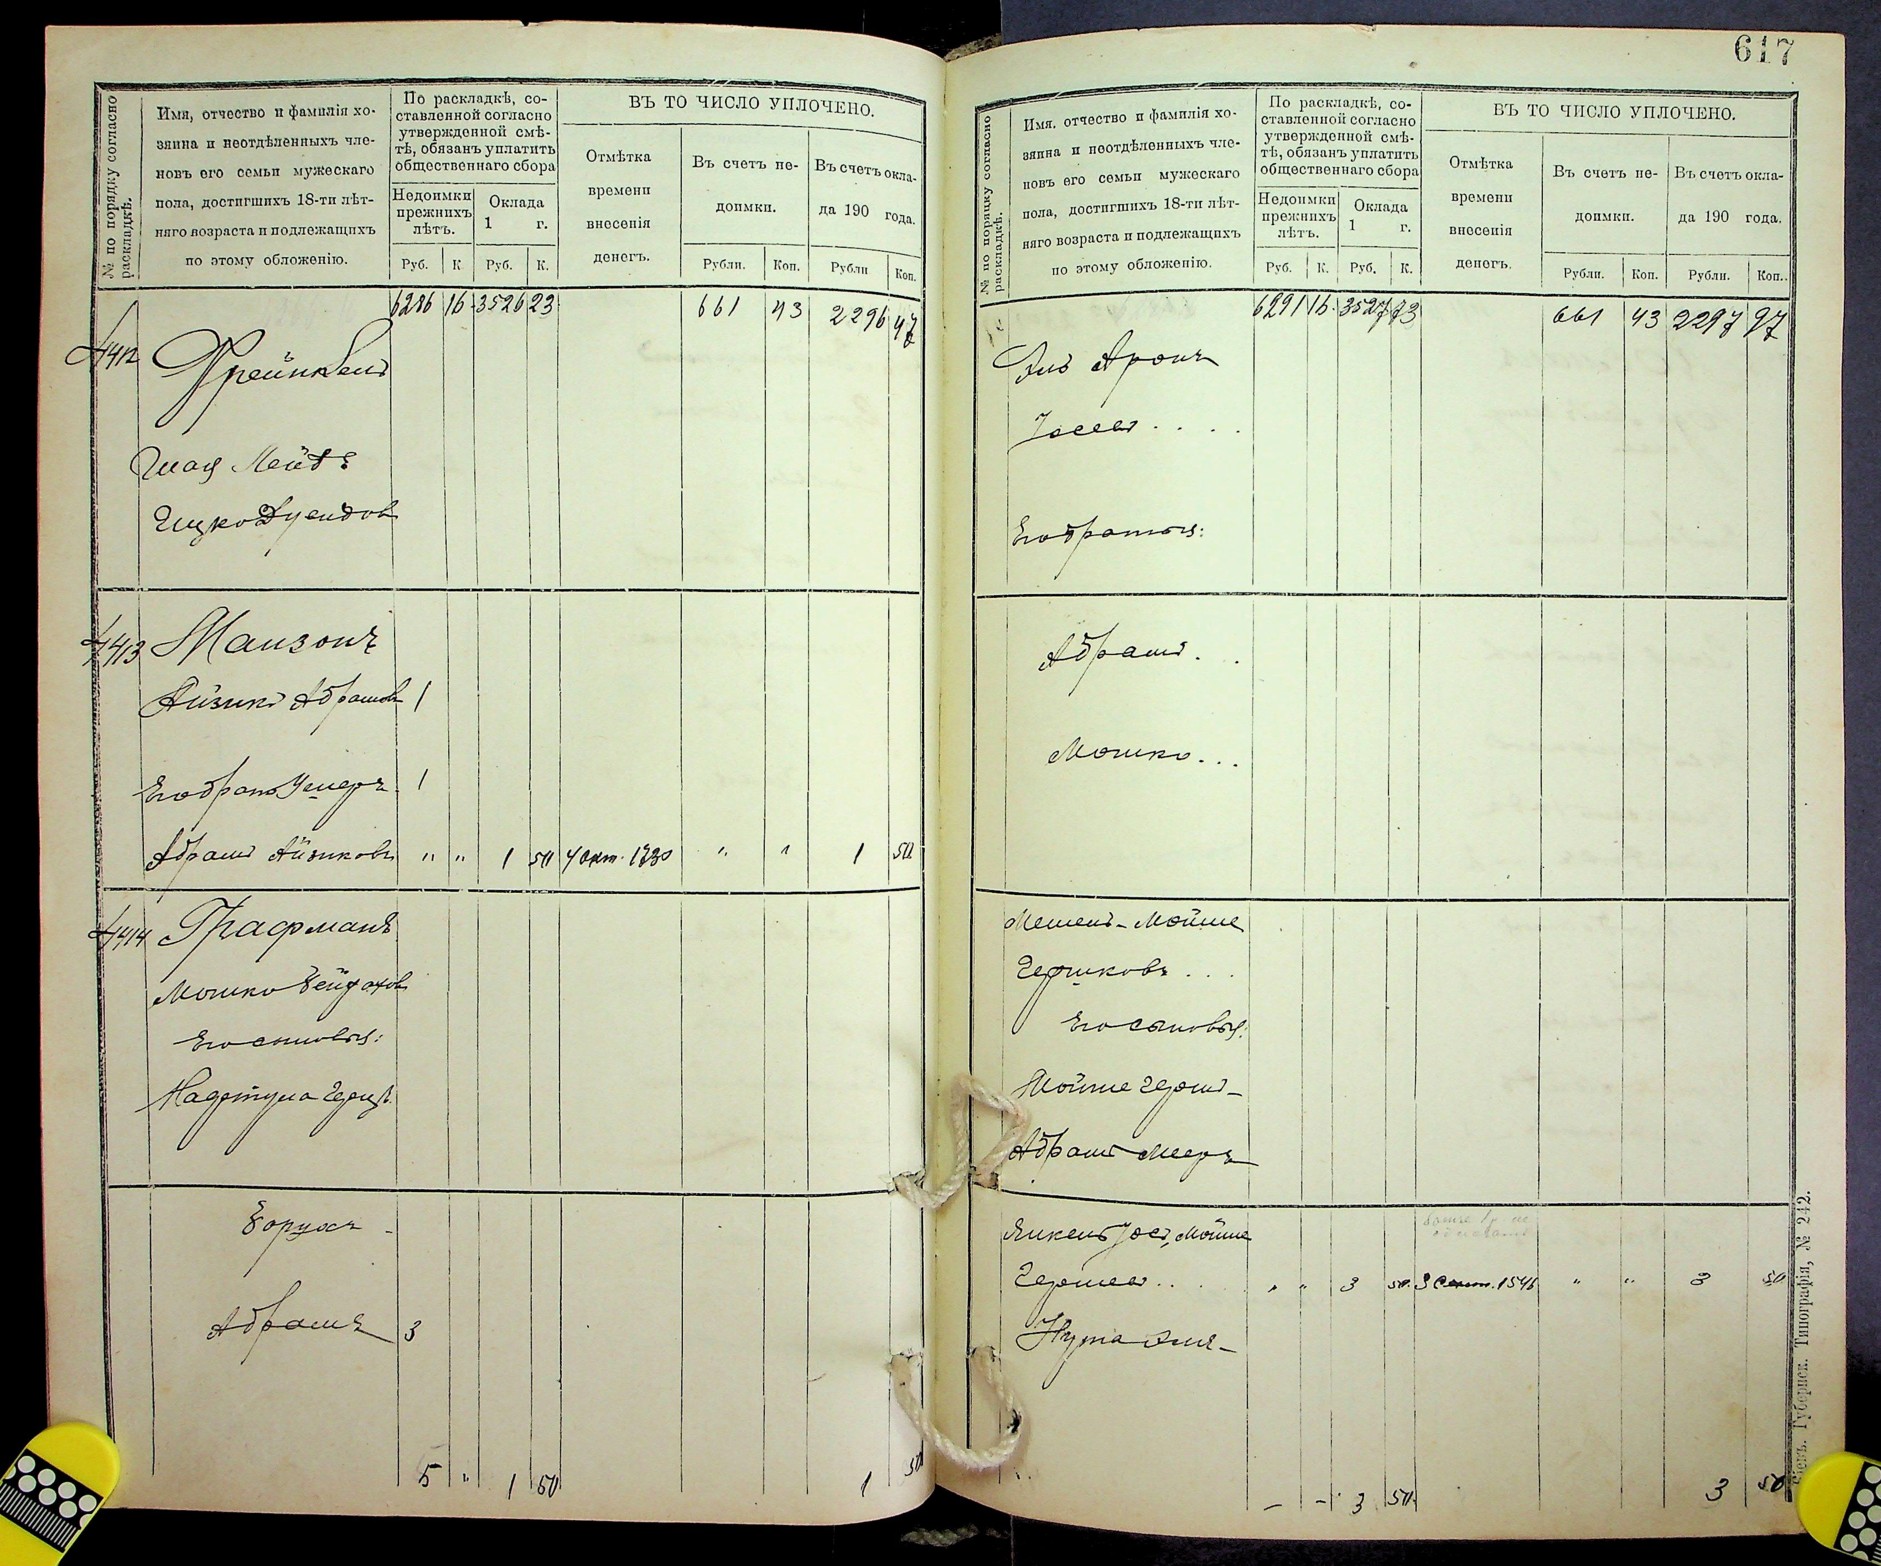 617
№ по порядку согласно раскладкѣ.
Имя, отчество и фамилія хо-
зяина и неотдѣленныхъ чле-
новъ его семьи мужескаго
пола, достигшихъ 18-ти лѣт-
няго возраста и подлежащихъ
по этому обложенію.
По раскладкѣ, со-
ставленной согласно
утвержденной смѣ-
тѣ, обязанъ уплатить
общественнаго сбора
Недоимки прежнихъ лѣтъ.
Оклада 1 г.
Руб. К. Руб. К.
ВЪ ТО ЧИСЛО УПЛОЧЕНО.
Отмѣтка
времени
внесенія
денегъ.
Въ счетъ не-
доимки.
Въ счетъ окла-
да 190 года.
Рубли. Коп. Рубли Коп.
6286 16 3526 23 661 43 2296 47
4412
Мейдъ
4413 Манзонъ
Айзикъ Абрамовъ 1
Его братъ 1
Абрамъ Айзиковъ " " 1 50 4 окт. 1730 " " 1 50
4414 Графманъ
Мошко
Его сыновья:
Борухъ -
Абрамъ 3
5 " 1 50 1 50
№ по порядку согласно раскладкѣ.
Имя, отчество и фамилія хо-
зяина и неотдѣленныхъ чле-
новъ его семьи мужескаго
пола, достигшихъ 18-ти лѣт-
няго возраста и подлежащихъ
по этому обложенію.
По раскладкѣ, со-
ставленной согласно
утвержденной смѣ-
тѣ, обязанъ уплатить
общественнаго сбора
Недоимки прежнихъ лѣтъ.
Оклада 1 г.
Руб. К. Руб. К.
ВЪ ТО ЧИСЛО УПЛОЧЕНО.
Отмѣтка
времени
внесенія
денегъ.
Въ счетъ не-
доимки.
Въ счетъ окла-
да 190 года.
Рубли. Коп. Рубли. Коп.
6291 16 3527 73 661 43 2297 97
Аронъ
Іосель . . . .
Его братья:
Абрамъ . .
Мошко . . .
Мойше
Гершковъ . . .
Его сыновья:
Мойше Гершъ -
Абрамъ Мееръ
Янкель Мойше
" " 3 50 3 Сент. 1546 " " 3 50
Нута
- - 3 50 3 50
Губернск. Типографія, № 242.